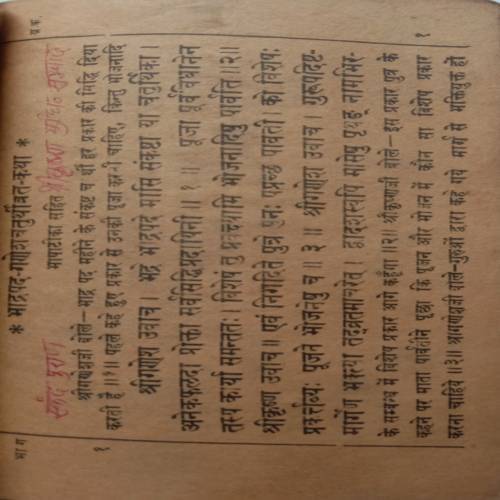 भा ग
ब्र.क.
* भाद्रपद-गणेशचतुर्थीव्रत-कथा *
भाषाटीका सहित
१
१
श्रीगणेशजी बोले—भाद्र पद महीने के संकष्ट च थी हर प्रकार की सिद्धि दिया
करती है ॥१॥ पहले कहे हुए प्रकार से उनकी पूजा करनी चाहिए, किन्तु भोजनादि
श्रीगणेश उवाच । भद्रे भाद्रपदे मासि संकष्टा या चतुर्थिका ।
अनेकफलदा प्रोक्ता सर्वसिद्धिप्रदायिनी ॥ १ ॥ पूजा पूर्व विधानेन
तस्य कार्या समन्ततः । विशेषं तु प्रवक्ष्यामि भोजनादिषु पार्वति ॥२॥
श्रीकृष्ण उवाच ॥ एवं निगदिते पुत्रे पुनः पप्रच्छ पार्वती । को विशेषः
प्रकर्तव्यः पूजने भोजनेषु च ॥ ३ ॥ श्रीगणेश उवाच । गुरूपदिष्ट-
मार्गेण भक्त्या तद्व्रतमाचरेत् । द्वादशस्वपि मासेषु पृथङ् नामभिर-
के सम्बन्ध में विशेष प्रकार आगे कहूँगा ॥२॥ श्रीकृष्णजी बोले—इस प्रकार पुत्र के
कहने पर माता पार्वतीने पूछा कि पूजन और भोजन में कौन सा विशेष प्रकार
करना चाहिये ॥३॥ श्रीगणेशजी बोले—गुरुओं द्वारा कहे गये मार्ग से भक्तियुक्त हो